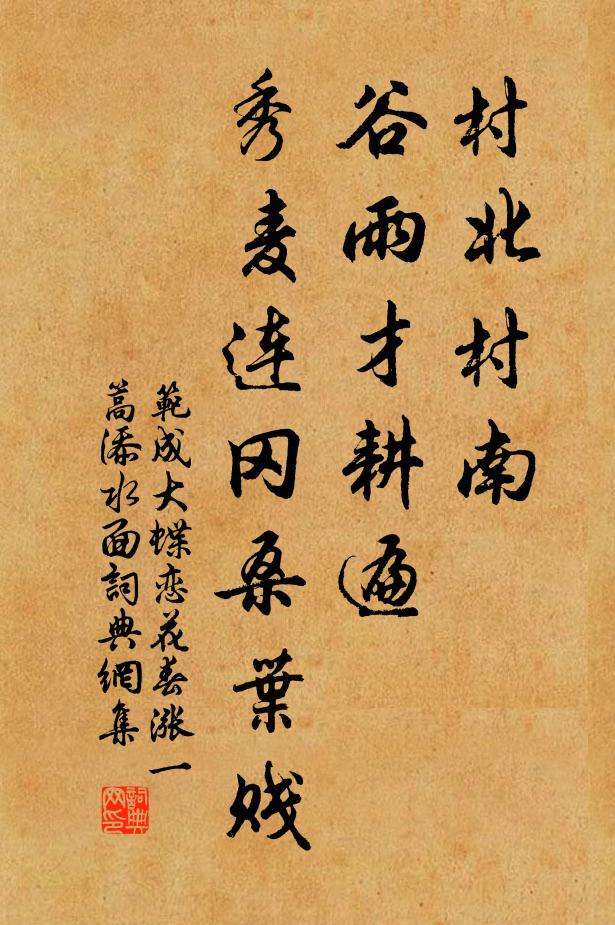 村北村南
谷雨才耕遍
秀麦连冈桑葉贱
範成大蝶恋花春漲一
篙添水面詞典網集
詞典
网印